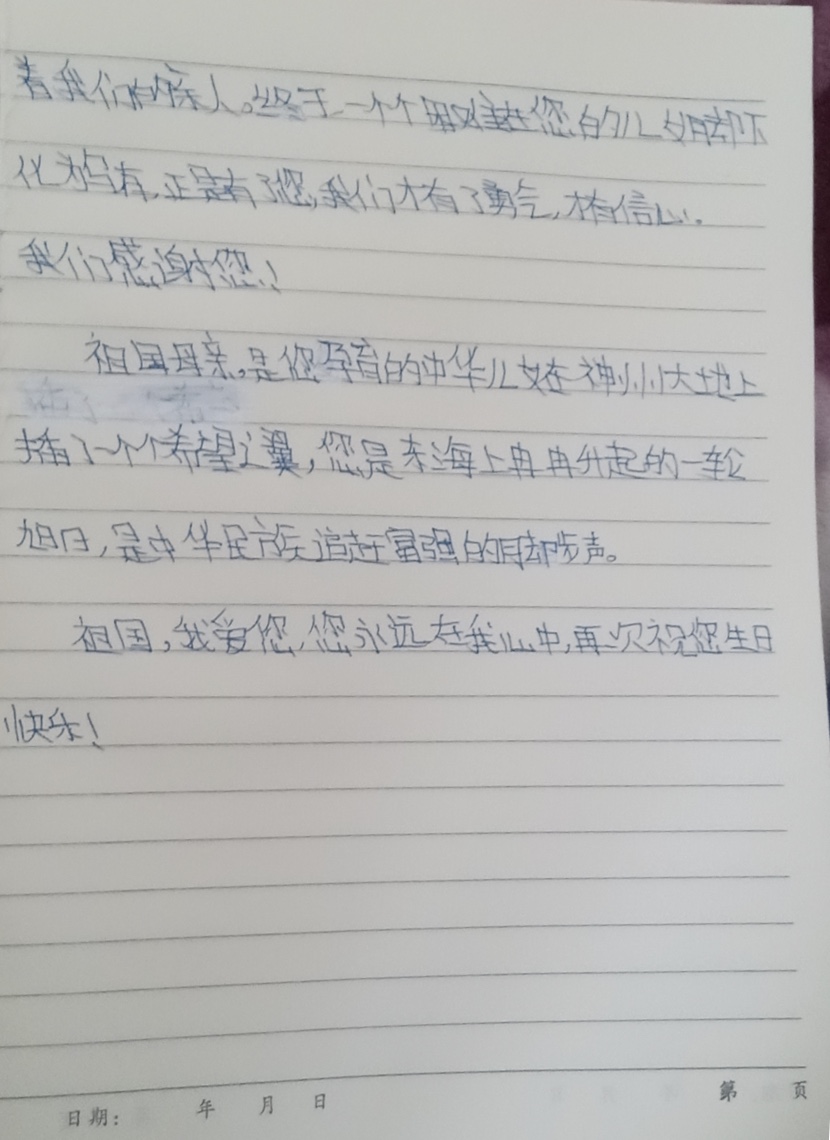 着我们的家人。终于一个个困难在您的儿女脚下
化为乌有,正是有了您,我们才有了勇气,才有信心.
我们感谢您!
祖国母亲,是您孕育的中华儿女在神州大地上
插了一个个希望之翼,您是东海上冉冉升起的一轮
旭日,是中华民族追赶富强的脚步声。
祖国,我爱您,您永远在我心中,再次祝您生日
快乐!
日期: 年 月 日
第 页